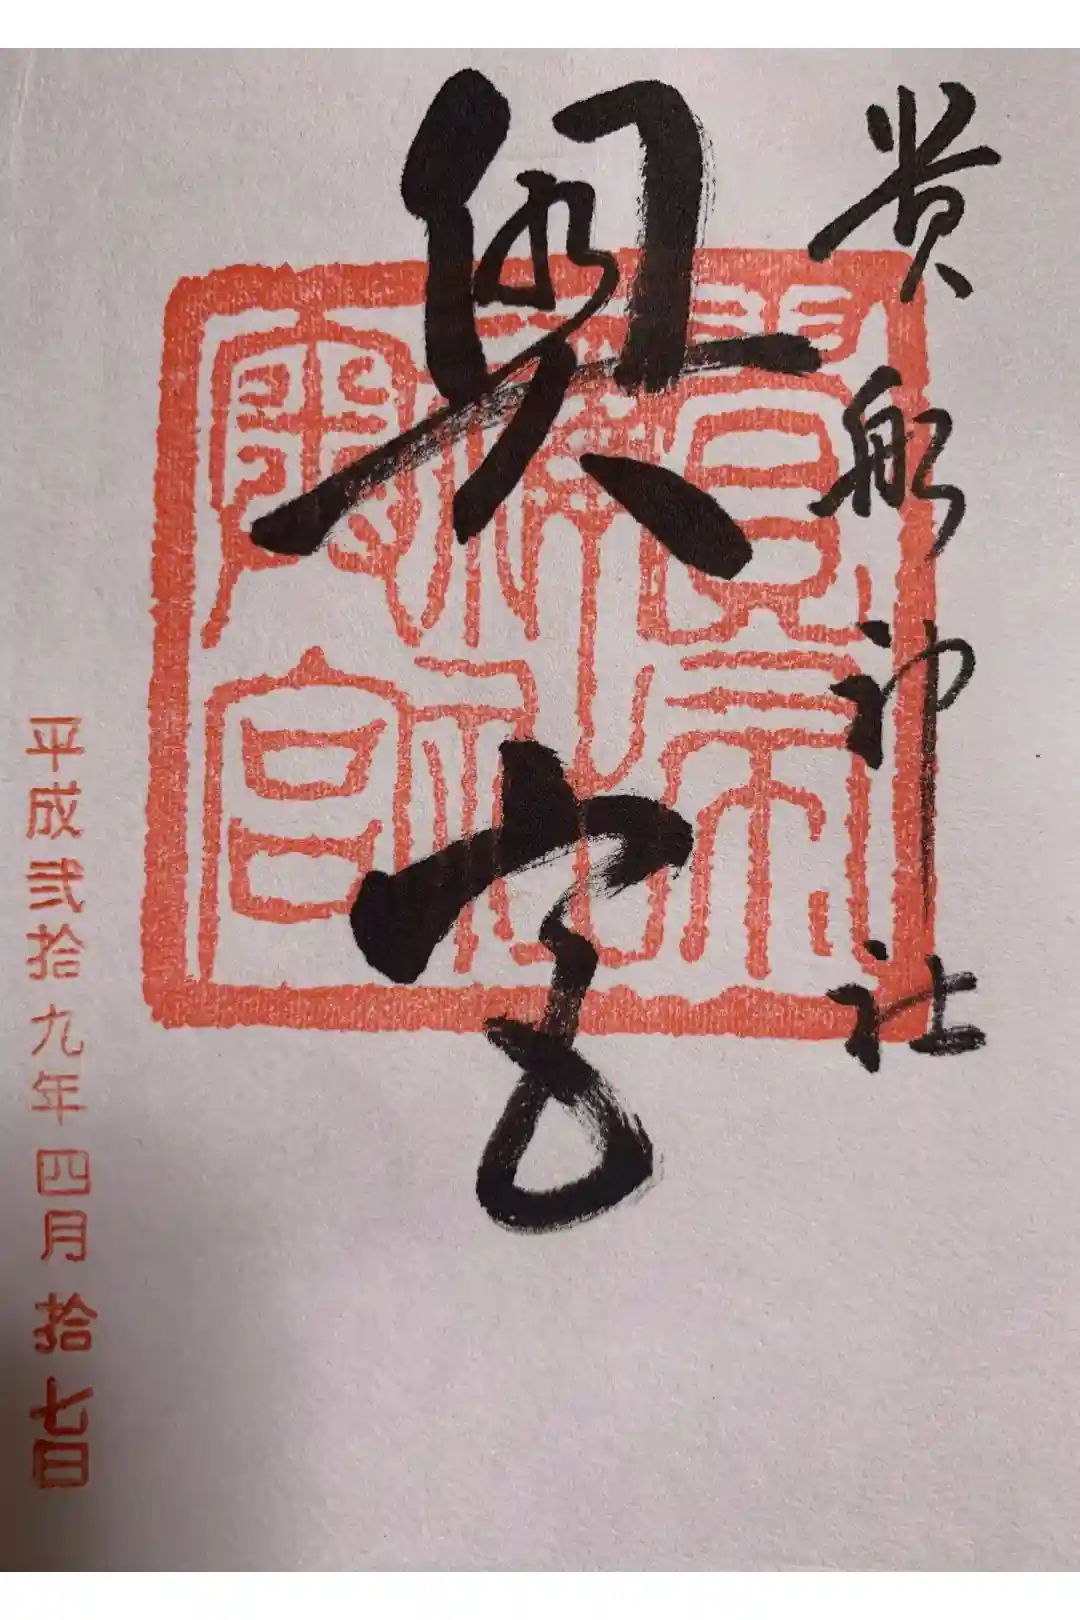 貴船神社
奥宮
平成弐拾九年四月拾七日